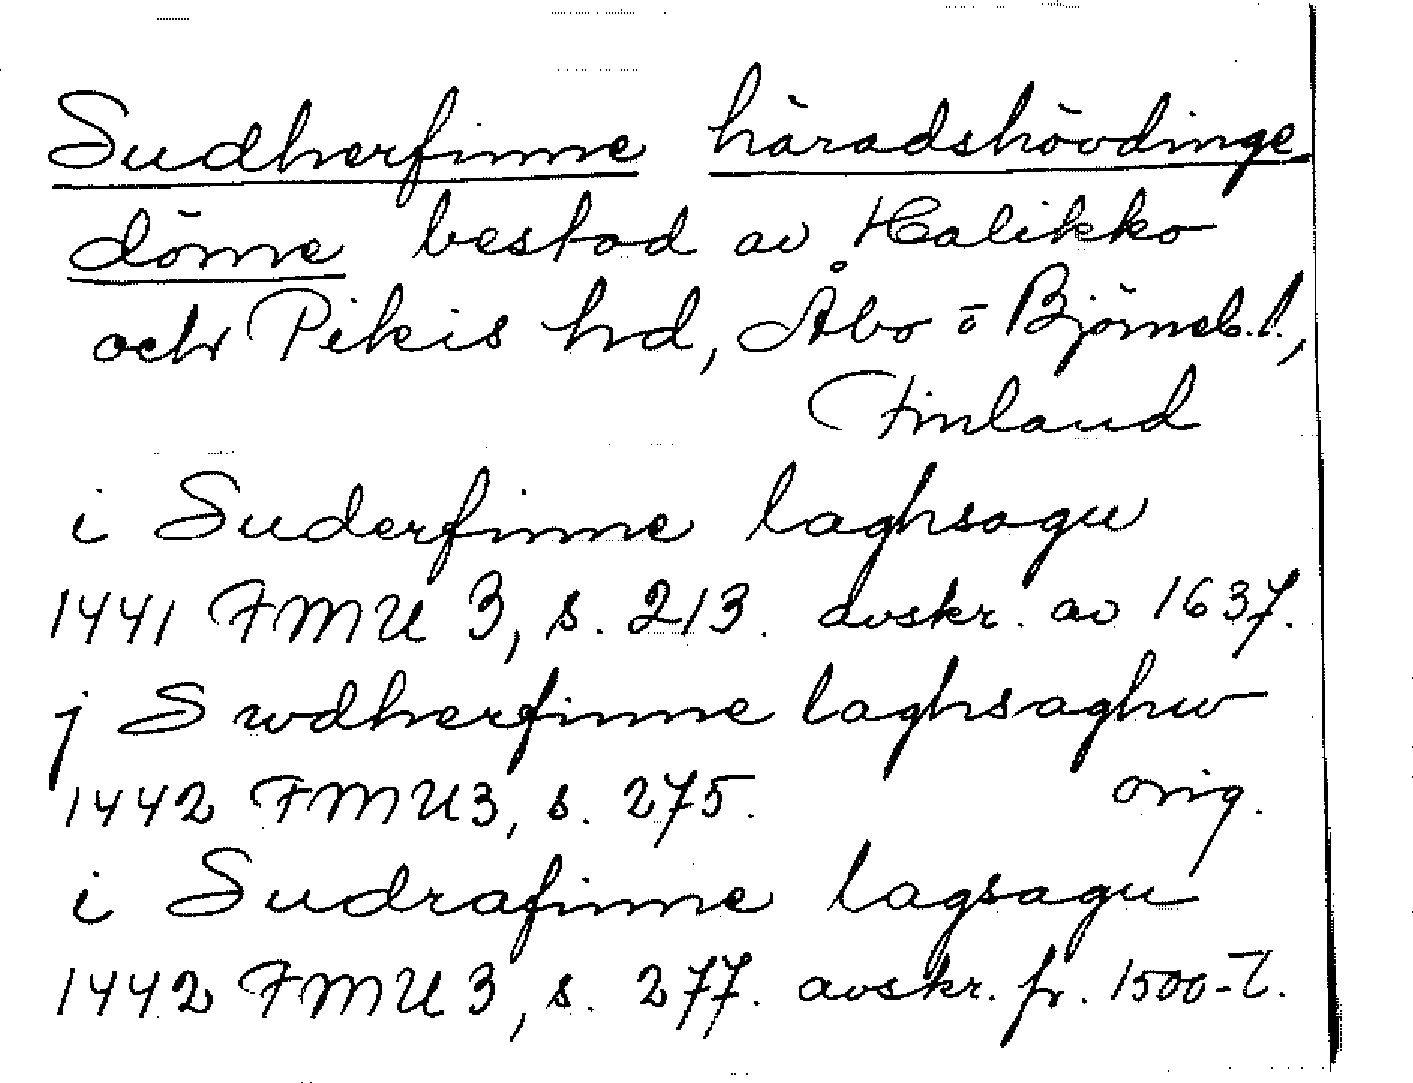 Sudherfinne häradshövdinge-
döme bestod av Halikko
och Pikis hd, Åbo o Björneb. l.,
Finland
i Suderfinne laghsagu
1441 FMU 3, s. 213. avskr. av 1637.
j Swdherfinne laghsaghw
1442 FMU 3, s. 275. orig.
i Sudrafinne lagsagu
1442 FMU 3, s. 277. avskr. fr. 1500-t.